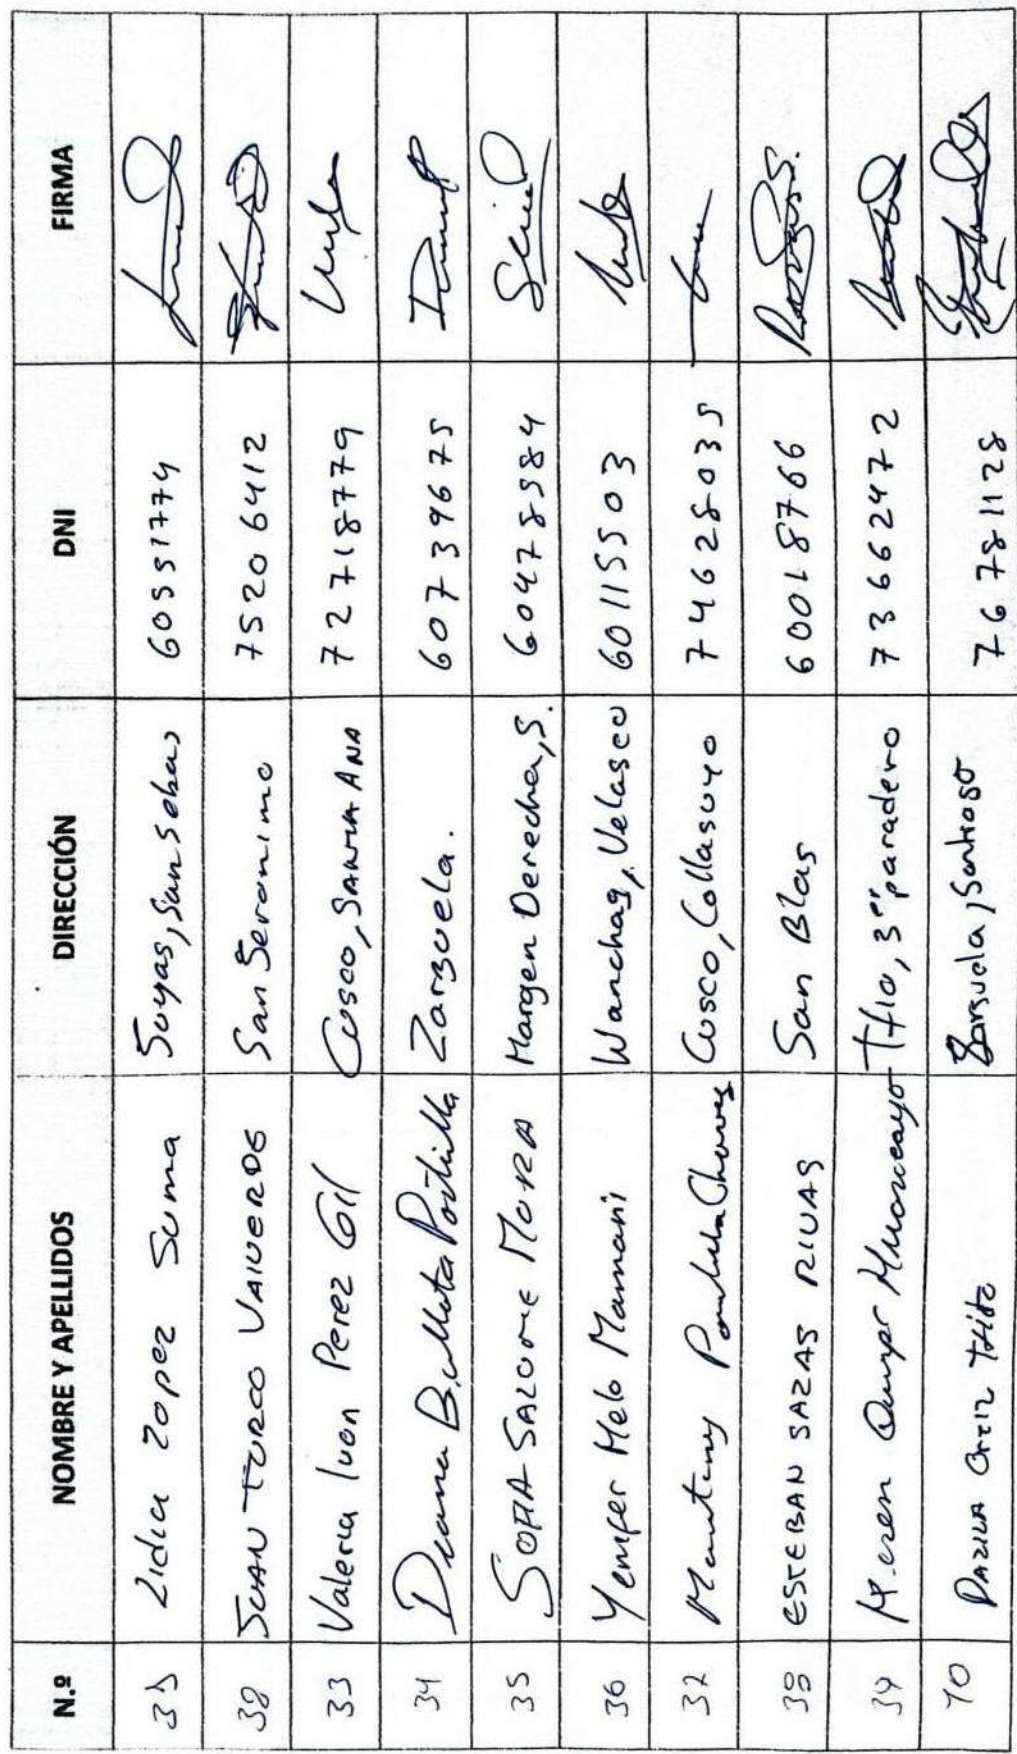 N.º NOMBRE Y APELLIDOS DIRECCIÓN DNI FIRMA
Lidia Lopez Suma Suyas, San Sebas 60551774
38 JUAN TURCO VALVERDE San Jeronimo 75206412
33 Valeria Ivon Perez Gil Cusco, SANTA ANA 72718779
34 Diana Portilla Zarzuela. 60739675
35 SOFIA MORA Margen Derecha, S. 60478584
36 Yenifer Melo Mamani Wanchaq, Velasco 60115503
37 Cusco, Collasuyo 74628035
38 ESTEBAN SAZAS RIVAS San Blas 60018766
39 Quispe Ttio, 3er paradero 73662472
40 Ortiz Ttito Zarzuela, Santiago 76781128